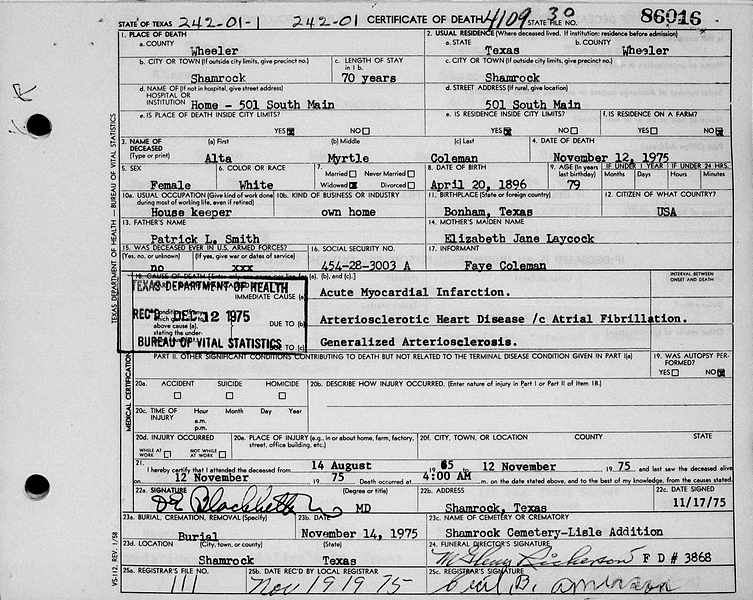 STATE OF TEXAS 242-01-1 242-01 CERTIFICATE OF DEATH 4109 30 STATE FILE NO. 86016
1. PLACE OF DEATH
a. COUNTY
Wheeler
2. USUAL RESIDENCE (Where deceased lived. If institution: residence before admission)
a. STATE b. COUNTY
Texas Wheeler
b. CITY OR TOWN (If outside city limits, give precinct no.)
Shamrock
c. LENGTH OF STAY in 1 b.
70 years
c. CITY OR TOWN (If outside city limits, give precinct no.)
Shamrock
d. NAME OF (If not in hospital, give street address)
HOSPITAL OR
INSTITUTION Home - 501 South Main
d. STREET ADDRESS (If rural, give location)
501 South Main
e. IS PLACE OF DEATH INSIDE CITY LIMITS?
YES NO
e. IS RESIDENCE INSIDE CITY LIMITS?
YES NO
f. IS RESIDENCE ON A FARM?
YES NO
3. NAME OF DECEASED (Type or print)
(a) First (b) Middle (c) Last
Alta Myrtle Coleman
4. DATE OF DEATH
November 12, 1975
5. SEX
Female
6. COLOR OR RACE
White
7. Married Never Married
Widowed Divorced
8. DATE OF BIRTH
April 20, 1896
9. AGE (In years last birthday)
79
IF UNDER 1 YEAR IF UNDER 24 HRS.
Months Days Hours Minutes
10a. USUAL OCCUPATION (Give kind of work done during most of working life, even if retired)
House keeper
10b. KIND OF BUSINESS OR INDUSTRY
own home
11. BIRTHPLACE (State or foreign country)
Bonham, Texas
12. CITIZEN OF WHAT COUNTRY?
USA
13. FATHER'S NAME
Patrick L. Smith
14. MOTHER'S MAIDEN NAME
Elizabeth Jane Laycock
15. WAS DECEASED EVER IN U.S. ARMED FORCES?
(Yes, no, or unknown) (If yes, give war or dates of service)
no xxx
16. SOCIAL SECURITY NO.
454-28-3003 A
17. INFORMANT
Faye Coleman
18. CAUSE OF DEATH [Enter only one cause per line for (a), (b), and (c).]
INTERVAL BETWEEN ONSET AND DEATH
TEXAS DEPARTMENT OF HEALTH
REC'D DEC 12 1975
BUREAU OF VITAL STATISTICS
IMMEDIATE CAUSE (a) Acute Myocardial Infarction.
DUE TO (b) Arteriosclerotic Heart Disease /c Atrial Fibrillation.
above cause (a), stating the under-
DUE TO (c) Generalized Arteriosclerosis.
PART II. OTHER SIGNIFICANT CONDITIONS CONTRIBUTING TO DEATH BUT NOT RELATED TO THE TERMINAL DISEASE CONDITION GIVEN IN PART I(a)
19. WAS AUTOPSY PERFORMED?
YES NO
20a. ACCIDENT SUICIDE HOMICIDE
20b. DESCRIBE HOW INJURY OCCURRED. (Enter nature of injury in Part I or Part II of Item 18.)
20c. TIME OF INJURY Hour Month Day Year
a.m.
p.m.
20d. INJURY OCCURRED
WHILE AT WORK NOT WHILE AT WORK
20e. PLACE OF INJURY (e.g., in or about home, farm, factory, street, office building, etc.)
20f. CITY, TOWN, OR LOCATION COUNTY STATE
21. I hereby certify that I attended the deceased from 14 August 19 65 to 12 November 19 75 and last saw the deceased alive
on 12 November 19 75 Death occurred at 4:00 AM m. on the date stated above, and to the best of my knowledge, from the causes stated.
22a. SIGNATURE (Degree or title)
MD
22b. ADDRESS
Shamrock, Texas
22c. DATE SIGNED
11/17/75
23a. BURIAL, CREMATION, REMOVAL (Specify)
Burial
23b. DATE
November 14, 1975
23c. NAME OF CEMETERY OR CREMATORY
Shamrock Cemetery-Lisle Addition
23d. LOCATION (City, town, or county) (State)
Shamrock Texas
24. FUNERAL DIRECTOR'S SIGNATURE
F D # 3868
25a. REGISTRAR'S FILE NO.
111
25b. DATE REC'D BY LOCAL REGISTRAR
Nov 19 1975
25c. REGISTRAR'S SIGNATURE
TEXAS DEPARTMENT OF HEALTH — BUREAU OF VITAL STATISTICS
MEDICAL CERTIFICATION
VS-112, REV. 1/58